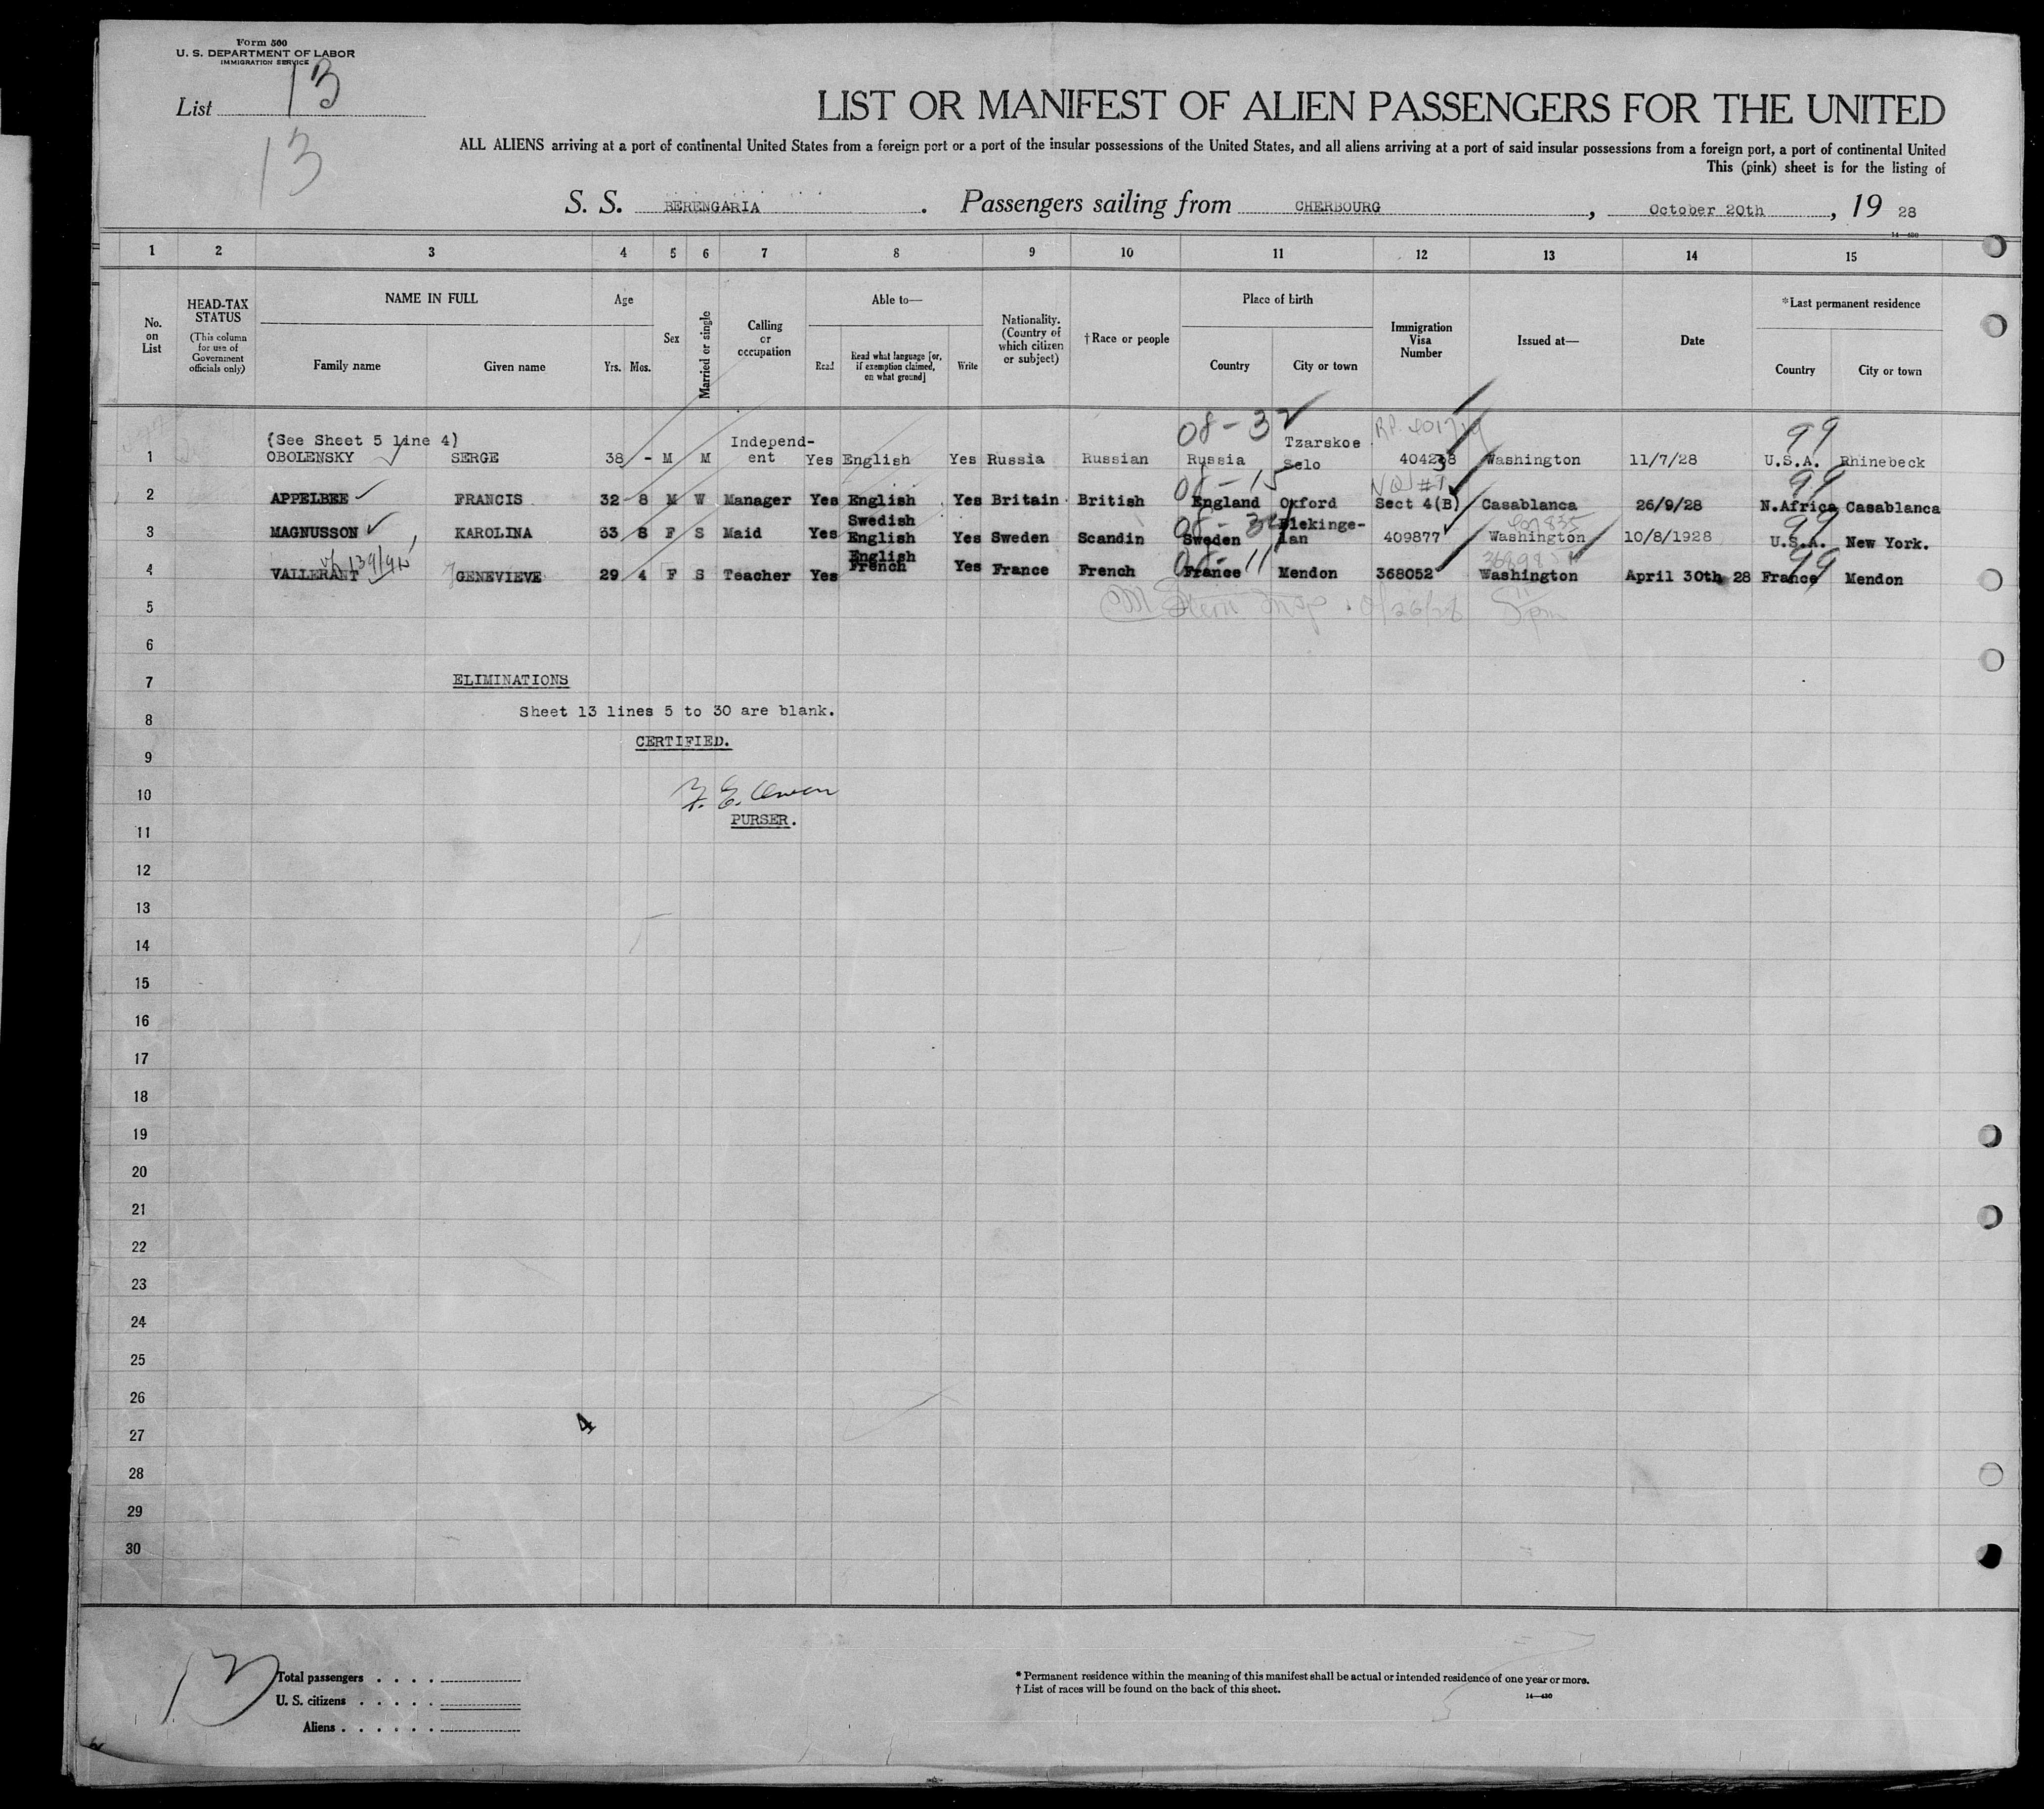 Form 500
U. S. DEPARTMENT OF LABOR
IMMIGRATION SERVICE
List 13
13
LIST OR MANIFEST OF ALIEN PASSENGERS FOR THE UNITED
ALL ALIENS arriving at a port of continental United States from a foreign port or a port of the insular possessions of the United States, and all aliens arriving at a port of said insular possessions from a foreign port, a port of continental United
This (pink) sheet is for the listing of
S. S. BERENGARIA . Passengers sailing from CHERBOURG , October 20th , 19 28
14—430
1 2 3 4 5 6 7 8 9 10 11 12 13 14 15
No. on List
HEAD-TAX STATUS (This column for use of Government officials only)
NAME IN FULL
Family name Given name
Age
Yrs. Mos.
Sex
Married or single
Calling or occupation
Able to—
Read Read what language [or, if exemption claimed, on what ground] Write
Nationality. (Country of which citizen or subject)
†Race or people
Place of birth
Country City or town
Immigration Visa Number
Issued at—
Date
*Last permanent residence
Country City or town
(See Sheet 5 line 4) Independ- 08-32 Tzarskoe 99
1 OBOLENSKY SERGE 38 - M M ent Yes English Yes Russia Russian Russia Selo 404238 Washington 11/7/28 U.S.A. Rhinebeck
08-15 99
2 APPELBEE FRANCIS 32 8 M W Manager Yes English Yes Britain British England Oxford Sect 4(B) Casablanca 26/9/28 N.Africa Casablanca
Swedish 08- Blekinge- 99
3 MAGNUSSON KAROLINA 33 8 F S Maid Yes English Yes Sweden Scandin Sweden lan 409877 Washington 10/8/1928 U.S.A. New York.
English 08-11 99
4 VALLERANT GENEVIEVE 29 4 F S Teacher Yes French Yes France French France Mendon 368052 Washington April 30th 28 France Mendon
5
6
7 ELIMINATIONS
Sheet 13 lines 5 to 30 are blank.
8
CERTIFIED.
9
10
PURSER.
11
12
13
14
15
16
17
18
19
20
21
22
23
24
25
26
4
27
28
29
30
13
Total passengers . . . .
U. S. citizens . . . . .
Aliens . . . . . .
* Permanent residence within the meaning of this manifest shall be actual or intended residence of one year or more.
† List of races will be found on the back of this sheet.
14—430